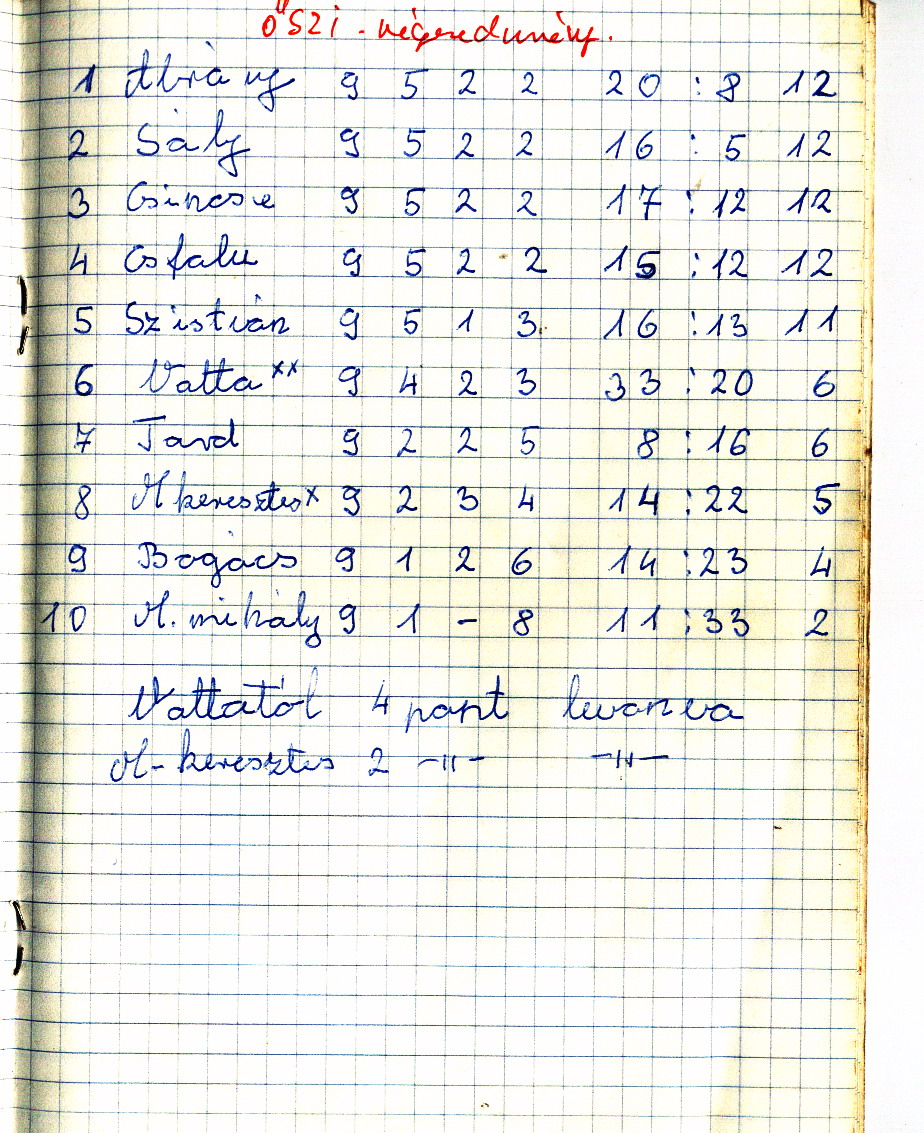 őszi - végeredmény.
1 Ábrány 9 5 2 2 20 : 8 12
2 Sály 9 5 2 2 16 : 5 12
3 Csincse 9 5 2 2 17 : 12 12
4 Csfalu 9 5 2 2 15 : 12 12
5 Szistván 9 5 1 3 16 : 13 11
6 Vatta xx 9 4 2 3 33 : 20 6
7 Tard 9 2 2 5 8 : 16 6
8 M keresztes x 9 2 3 4 14 : 22 5
9 Bogács 9 1 2 6 14 : 23 4
10 M. mihály 9 1 - 8 11 : 33 2
Vattától 4 pont levonva
M-keresztes 2 -"- -"-